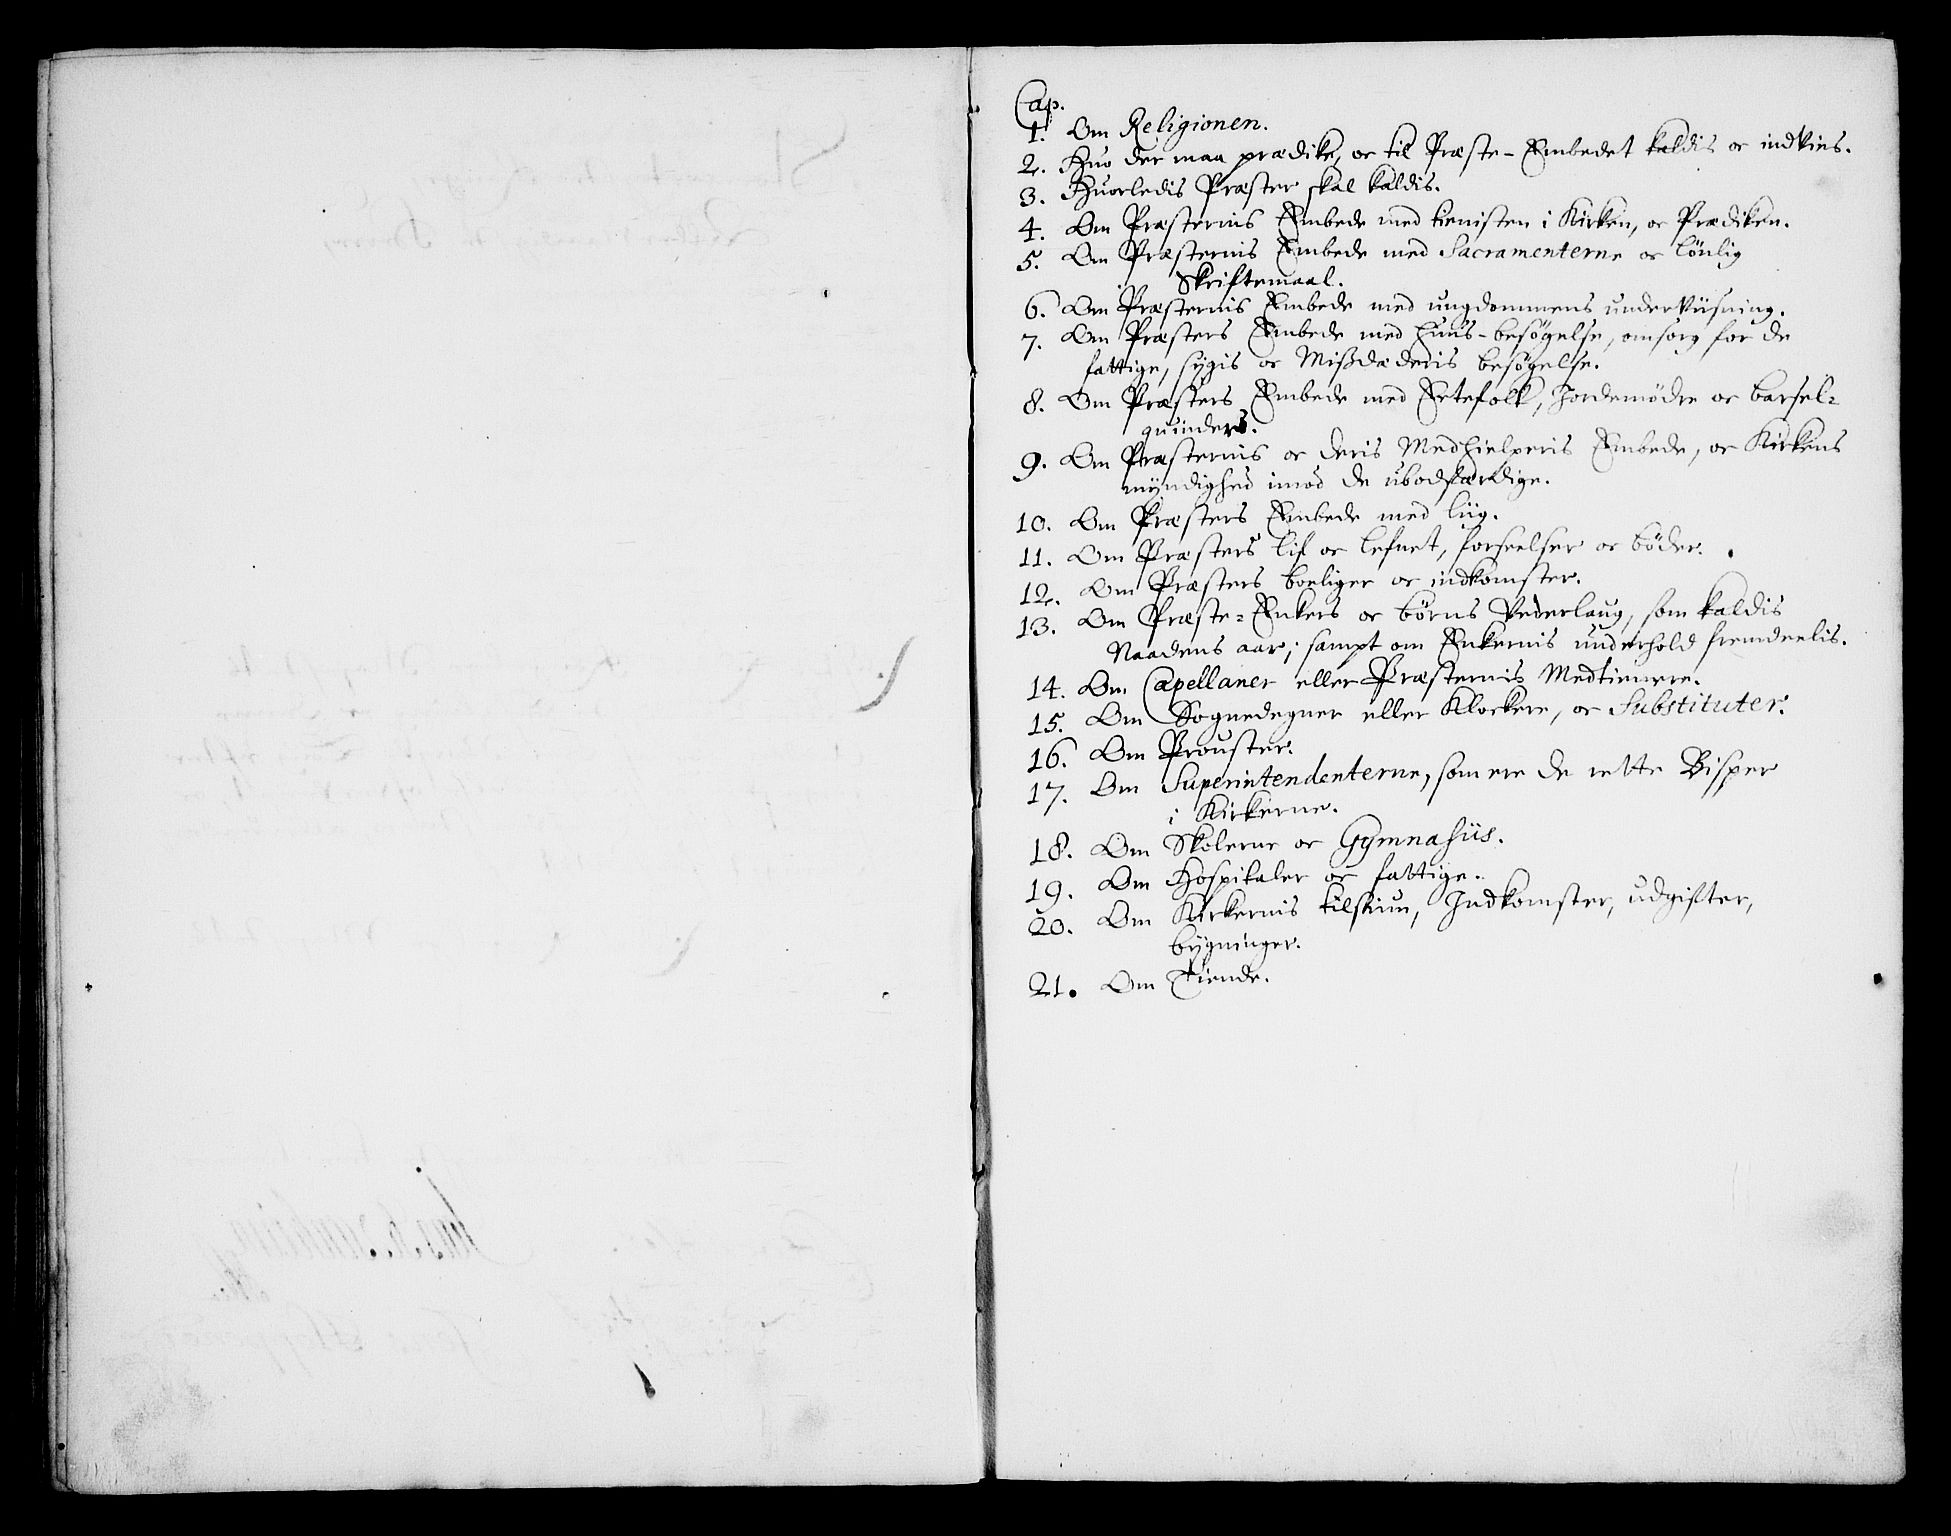 Cap.
1. Om Religionen.
2. Huo der maa prædike, oc til Præste-Embedet kaldis oc indvies.
3. Huorledis Præster skal kaldis.
4. Om Præsternis Embede med tienisten i Kirken, oc Prædiken.
5. Om Præsternis Embede med Sacramenterne oc lönlig
Skriftemaal.
6. Om Præsternis Embede med ungdommens underviisning.
7. Om Præsters Embede med huus-besögelse, omsorg for de
fattige, sygis oc Mißdæderis besögelse.
8. Om Præsters Embede med Ectefolk, Jordemödre oc barsel-
quinder.
9. Om Præsternis oc deris Medhielperis Embede, oc Kirkens
myndighed imod de ubodfærdige.
10. Om Præsters Embede med liig.
11. Om Præsters lif oc lefnet, forseelser oc böder.
12. Om Præsters boeliger oc indkomster.
13. Om Præste-Enkers oc börns Vederlaug, som kaldis
Naadens aar; sampt om Enkernis underhold fremdeelis.
14. Om Capellaner eller Præsternis Medtienere.
15. Om Sognedegner eller Klockere, oc Substituter.
16. Om Prouster.
17. Om Superintendenterne, som ere de rette Bisper
i Kirkerne.
18. Om Skolerne oc Gymnasiis.
19. Om Hospitaler oc fattige.
20. Om Kirkernis tilsiun, Indkomster, udgifter,
bygninger.
21. Om Tiende.